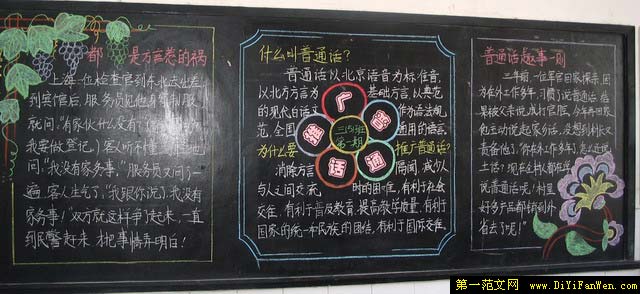 都是方言惹的祸
上海一位检查官到东北去出差
到宾馆后,服务员见他身穿制服
就问:"有家伙什么没有?
我要做登记"客人听不懂
问:"我没有家务事。"服务员又问了一
遍,客人生气了:"我跟你说了,我没有
家务事!"双方就这样争了起来,一直
到民警赶来,才把事情弄明白!
什么叫普通话?
普通话以北京语音为标准音
以北方方言为基础方言,以典范
的现代白话文作为语法规
范,全国通用的语言.
为什么要推广普通话?
消除方言隔阂,减少人
与人之间交流时的困难,有利于社会
交往,有利于普及教育,提高教学质量,有利于
国家的统一,民族的团结,有利于国际交往.
推广普通话
三(4)班
第一期
普通话趣事一则
三年前,一位军官回家探亲,因
为在外工作多年,习惯了说普通话,结
果被父亲说成打官腔,今年再回家
他主动说起家乡话,没想到村人又
责备他了:"你在外工作多年,怎么还说
土话?现在村人都在学
说普通话呢!村里
好多产品都销到外
省去了呢!"
第一范文网 www.DiYiFanWen.com